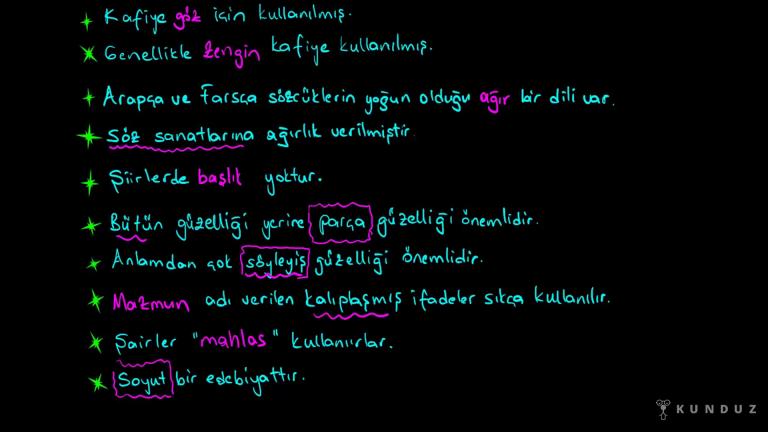 Kafiye göz için kullanılmış.
Genellikle zengin kafiye kullanılmış.
Arapça ve Farsça sözcüklerin yoğun olduğu ağır bir dili var.
Söz sanatlarına ağırlık verilmiştir.
Şiirlerde başlık yoktur.
Bütün güzelliği yerine parça güzelliği önemlidir.
Anlamdan çok söyleyiş güzelliği önemlidir.
Mazmun adı verilen kalıplaşmış ifadeler sıkça kullanılır.
Şairler "mahlas" kullanırlar.
Soyut bir edebiyattır.
KUNDUZ